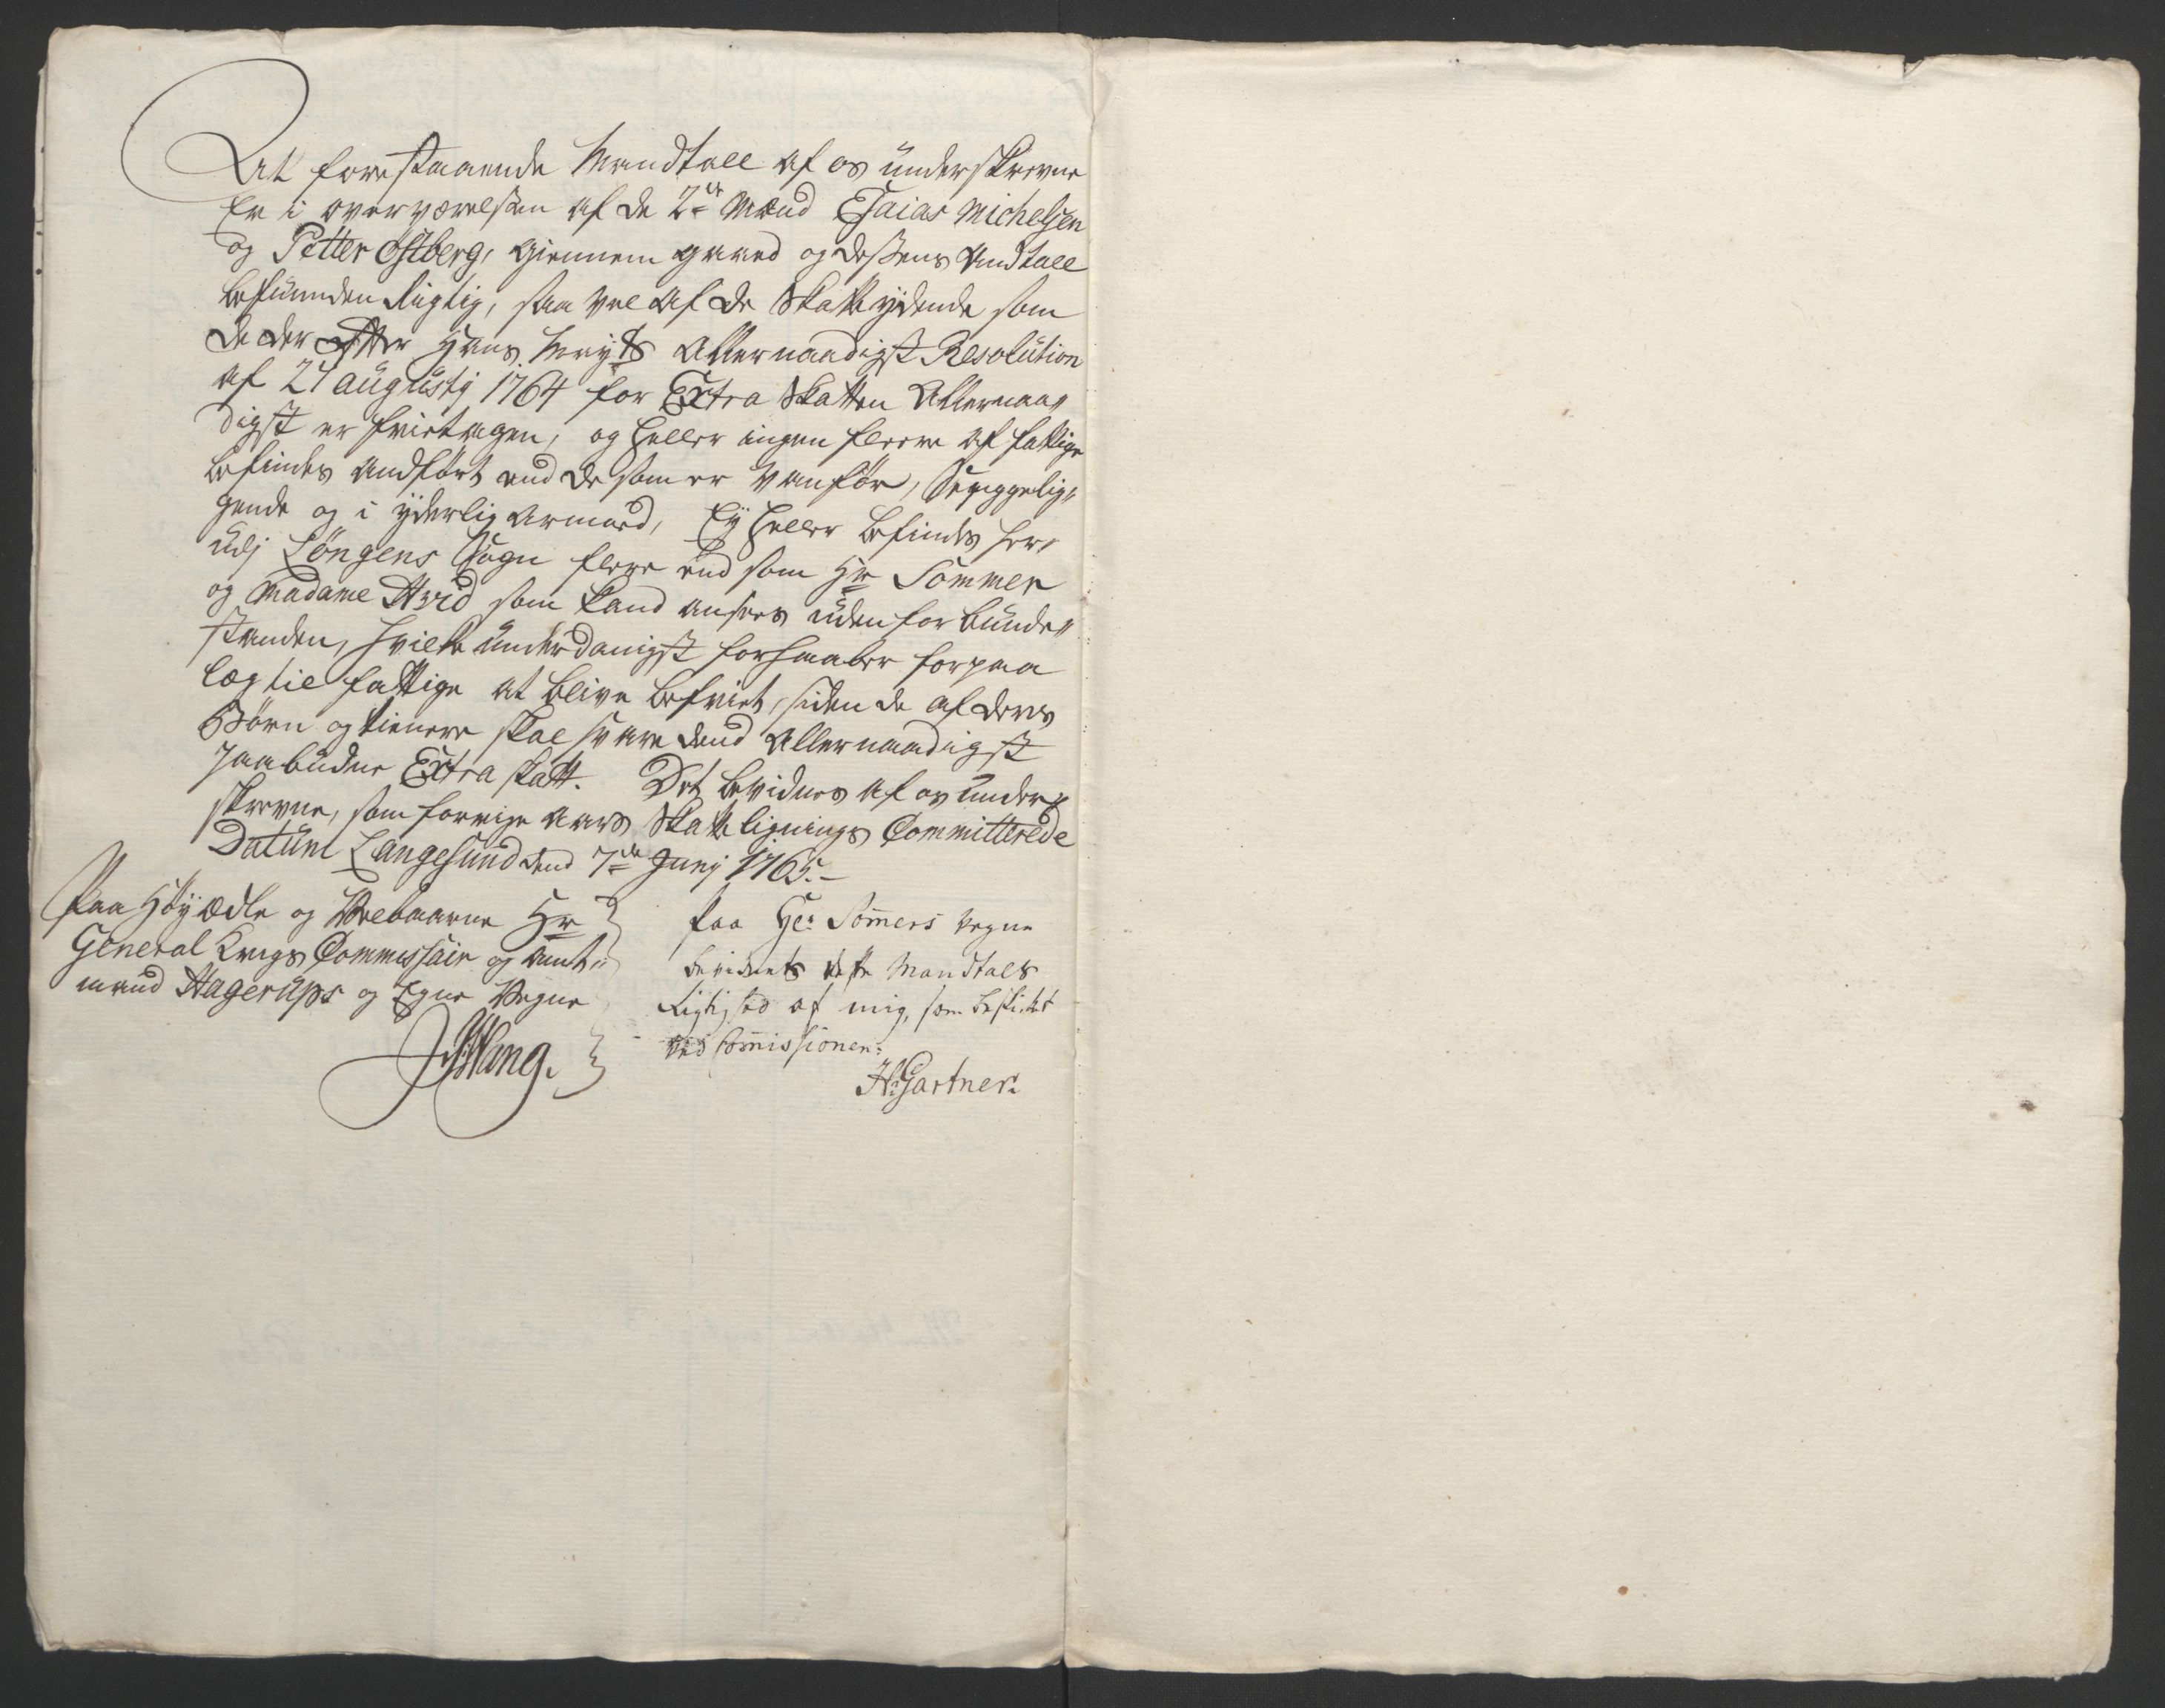 At forestaaende Mandtall af os underskrevne
Er i overværelsen af de 2de Mænd Esaias Michelsen
og Petter Østberg, giennemgaaed og dessens Andtall
befunden Rigtig, saa vel af de Skatteydende som
de der efter Hans Mayts Allernaadigst Resolution
af 27 augustj 1764 for Extra Skatten Allernaa„
digst er frietagen, og heller ingen fleere af fattige
befindes andført end de som er vanför, Senggelig„
gende og i yderlig armoed, Ey heller befindes her„
udj Löngens Sogn flere end som Hr Sommer
og Madame Hvid som kand ansees uden for bunde„
standen, hvilke underdanigst forhaaber for paa
læg til fattige at blive befriet, siden de af deres
Børn og tienere skal svare dend Allernaadigst
Paabudne Extra skatt. Det bevidnes af os under„
skrevne, som forrige aars Skatte lignings Committerede
Datum Langesund dend 7de Junj 1765.-
Paa Høyædle og Velbaarne Hr
General Krigs Commissair og Amt„
mand Hagerups og Egne Vegne
JWang.
Paa Hr: Sommers Vegne
bevidnes dette Mandtals
Rigtighed af mig, som beskikket
ved Commissionen:
H: Gartner: